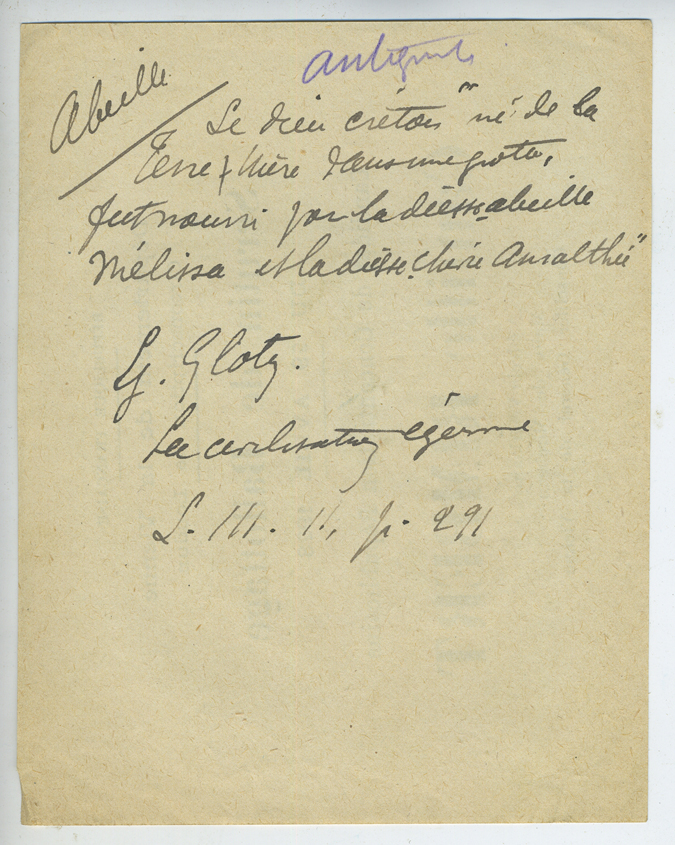 Abeille
antiquité
Le dieu crétois "né de la
Terre-Mère dans une grotte,
fut nourri par la déesse abeille
Mélissa et la déesse chèvre Amalthée"
G. Glotz.
La civilisation égéenne
L. III. II, p. 291